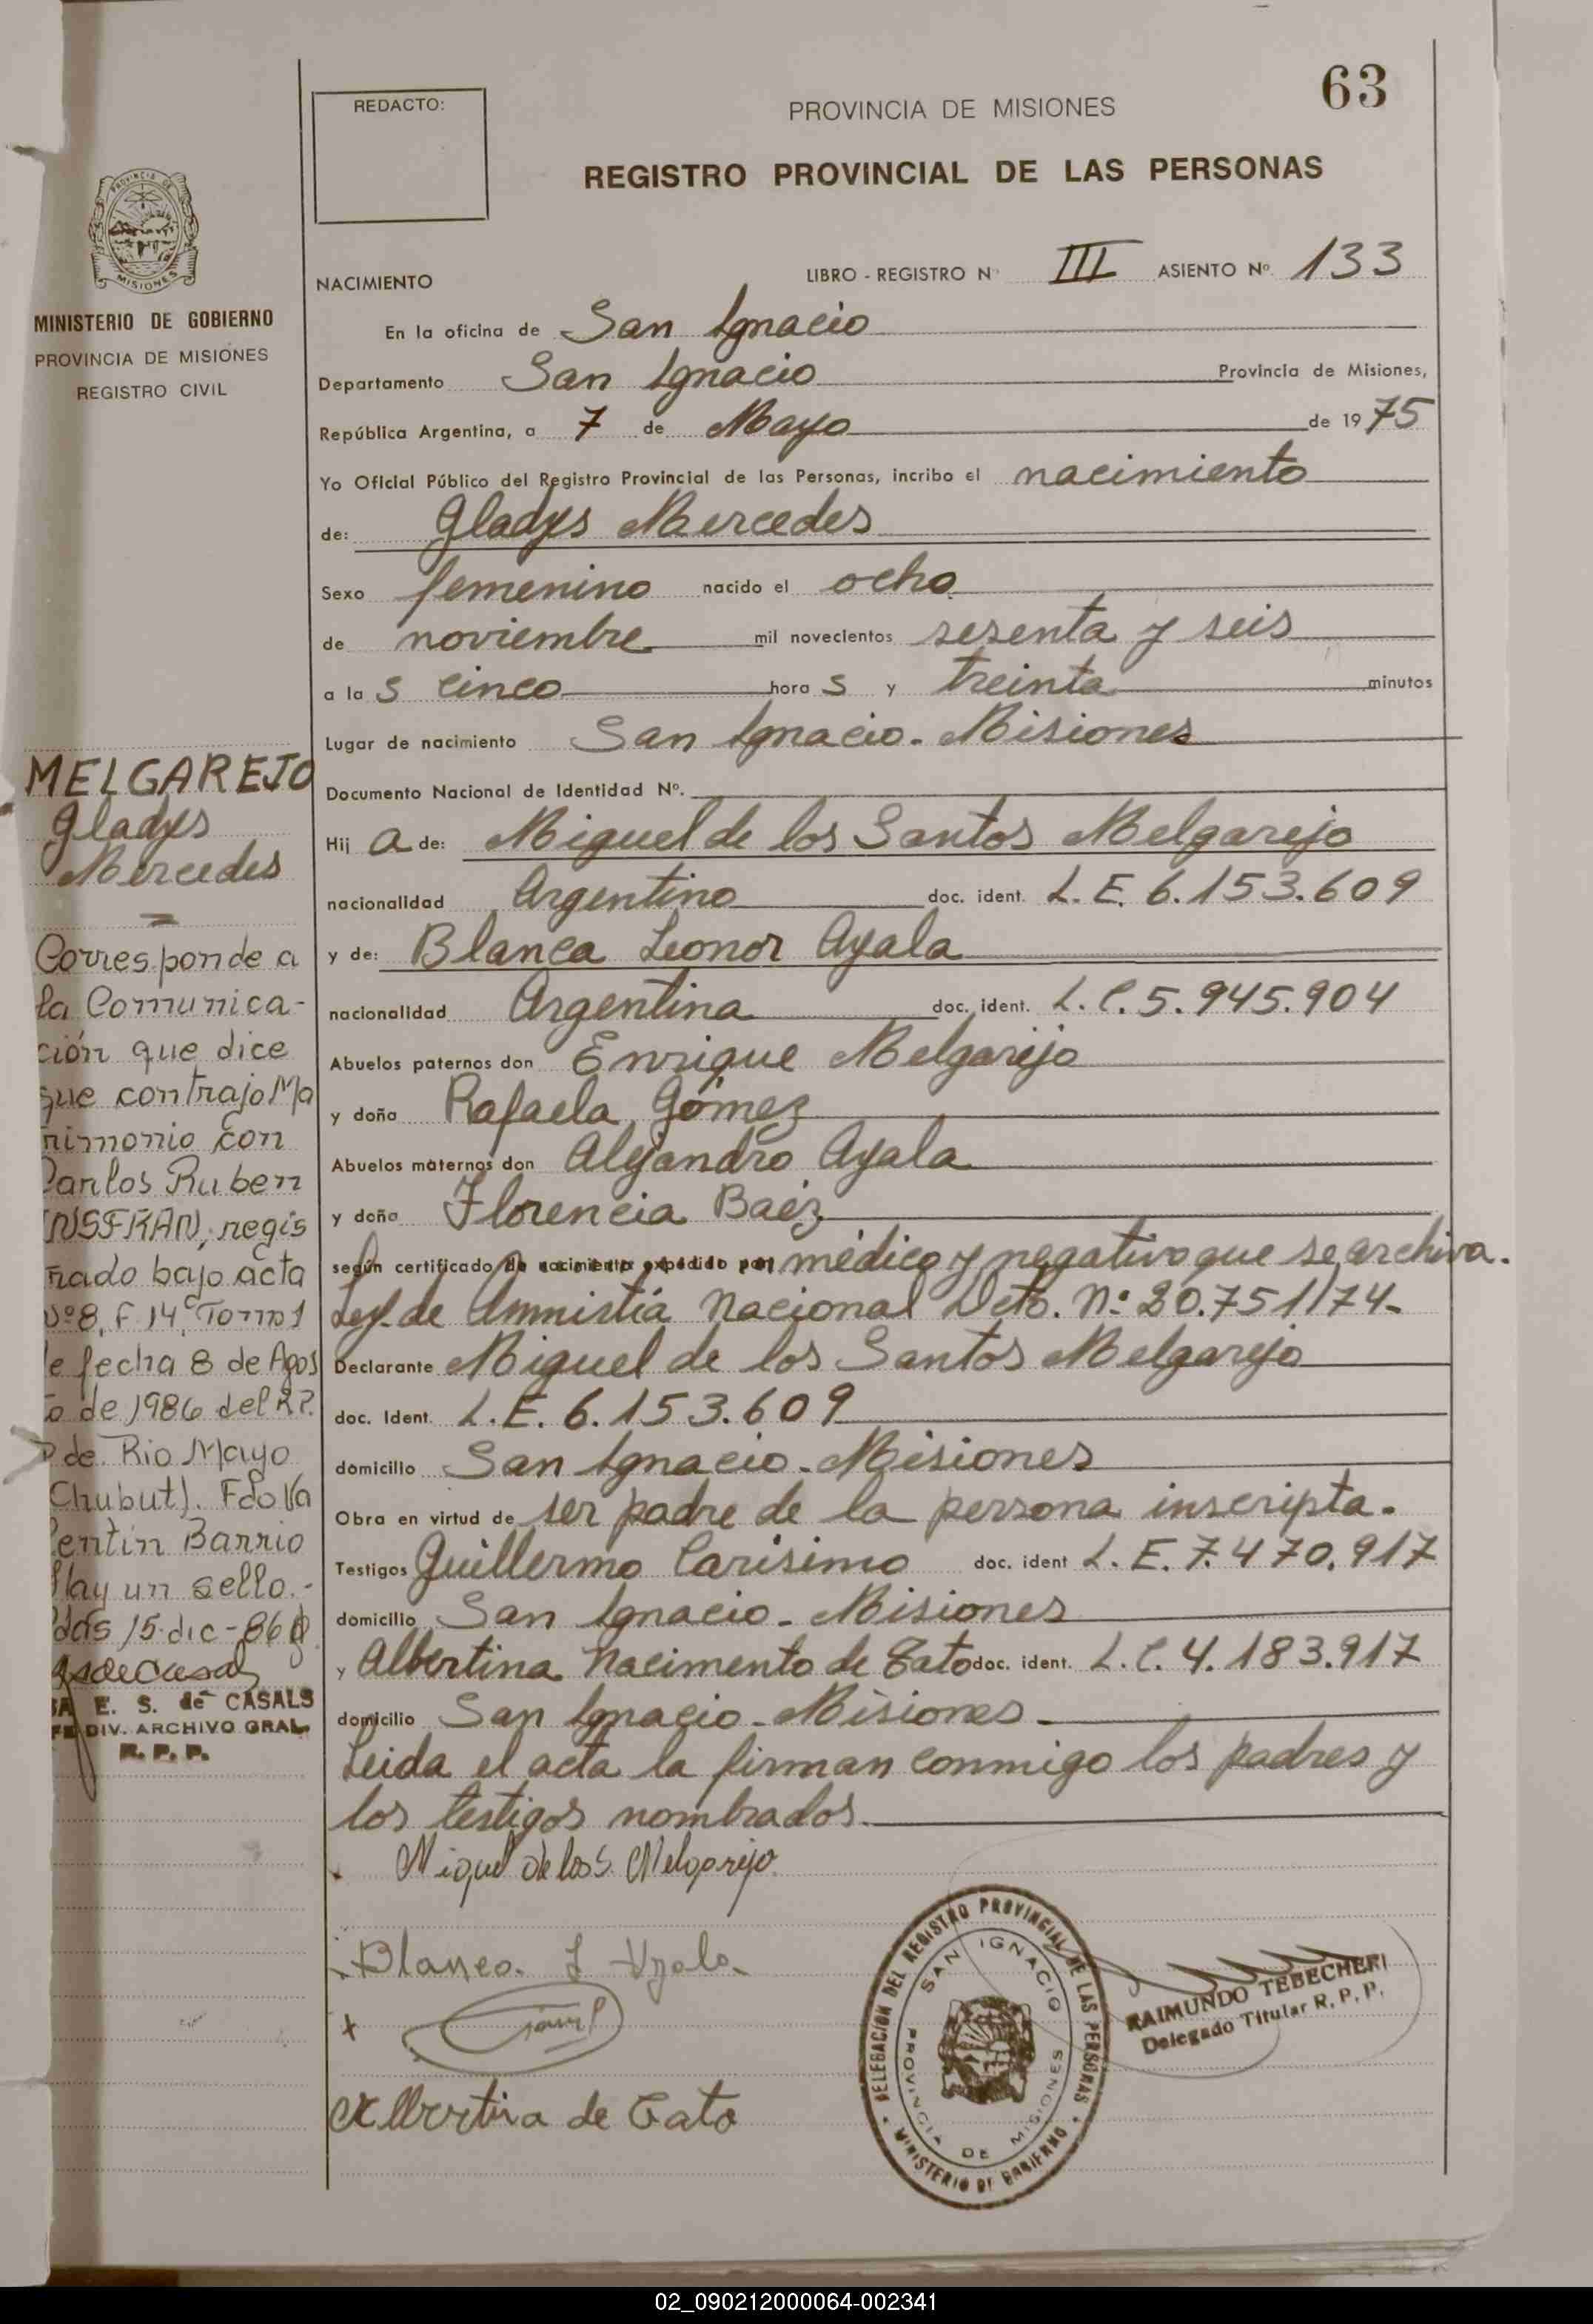 63
REDACTO:
PROVINCIA DE MISIONES
REGISTRO PROVINCIAL DE LAS PERSONAS
PROVINCIA DE
MISIONES
MINISTERIO DE GOBIERNO
PROVINCIA DE MISIONES
REGISTRO CIVIL
NACIMIENTO LIBRO - REGISTRO Nº III ASIENTO Nº 133
En la oficina de San Ignacio
Departamento San Ignacio Provincia de Misiones,
República Argentina, a 7 de Mayo de 1975
Yo Oficial Público del Registro Provincial de las Personas, incribo el nacimiento
de: Gladys Mercedes
Sexo femenino nacido el ocho
de noviembre mil novecientos sesenta y seis
a la s cinco hora s y treinta minutos
Lugar de nacimiento San Ignacio - Misiones
Documento Nacional de Identidad Nº.
Hij a de: Miguel de los Santos Melgarejo
nacionalidad Argentino doc. ident. L. E. 6.153.609
y de: Blanca Leonor Ayala
nacionalidad Argentina doc. ident. L. C. 5.945.904
Abuelos paternos don Enrique Melgarejo
y doña Rafaela Gómez
Abuelos maternos don Alejandro Ayala
y doña Florencia Baéz
según certificado de nacimiento expedido por médico y negativo que se archiva.
Ley de Amnistía Nacional Deto. Nº 20.751/74-
Declarante Miguel de los Santos Melgarejo
doc. Ident. L. E. 6.153.609
domicilio San Ignacio - Misiones
Obra en virtud de ser padre de la persona inscripta.
Testigos Guillermo Carísimo doc. ident L. E. 7.470.917
domicilio San Ignacio - Misiones
y Albertina Nacimento de Gato doc. ident. L. C. 4.183.917
domicilio San Ignacio - Misiones -
Leida el acta la firman conmigo los padres y
los testigos nombrados
Miguel de los S. Melgarejo
Blanca L Ayala
Albertina de Gato
MELGAREJO
Gladys
Mercedes
Corresponde a
la Comunica-
ción que dice
que contrajo Ma
rimonio con
Carlos Ruben
INSFRAN, regis
trado bajo acta
Nº 8, F 14, Tomo 1
de fecha 8 de Agos
to de 1986 del R.P.
P de Rio Mayo
Chubut). Fdo Va
lentin Barrio
Hay un sello.-
Pdas 15-dic-86
E. S. de CASALS
DIV. ARCHIVO GRAL.
R. P. P.
DELEGACIÓN DEL REGISTRO PROVINCIAL DE LAS PERSONAS
MINISTERIO DE GOBIERNO
SAN IGNACIO
PROVINCIA DE MISIONES
RAIMUNDO TEBECHERI
Delegado Titular R. P. P.
02_090212000064-002341